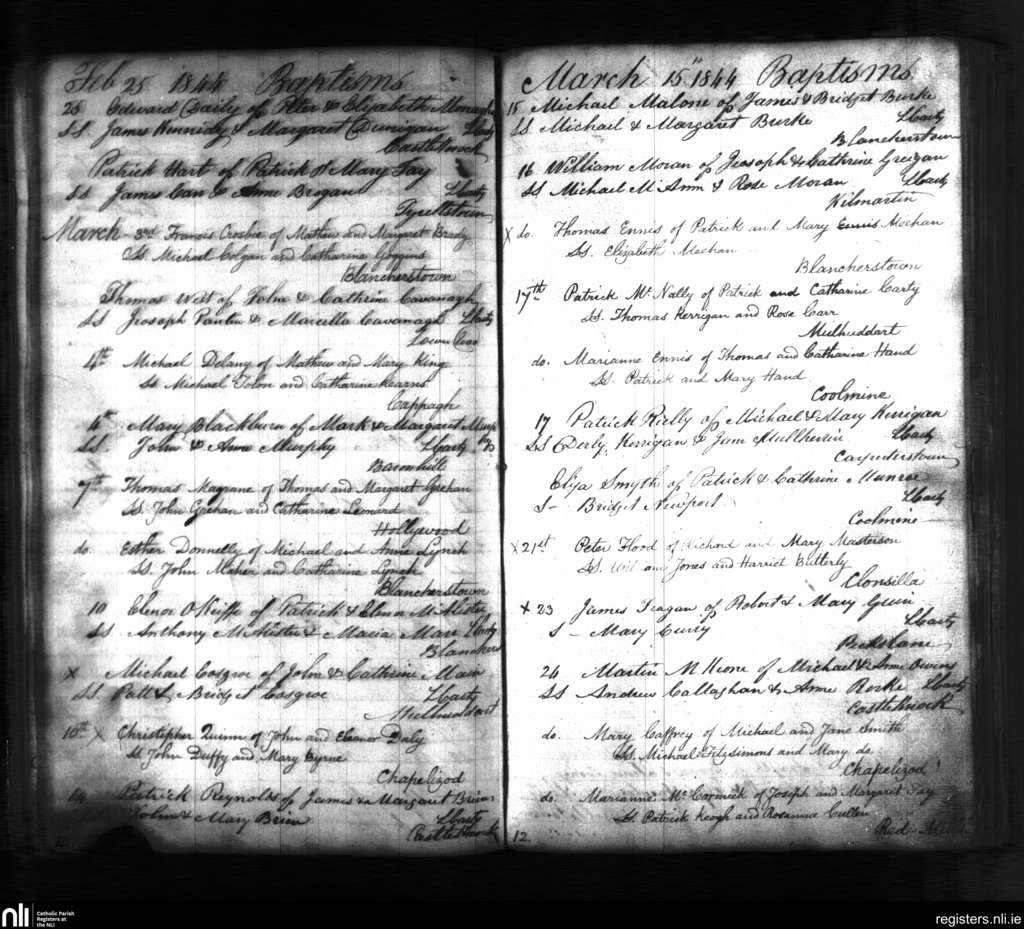 Feb 25 1844 Baptisms
25 Edward Daily of Peter & Elizabeth Monagh
SS. James Kennedy & Margaret Dunigan LCarty
Castleknock
Patrick Hart of Patrick & Mary Fay
SS James Carr & Anne Brogan LCarty
Tyrellstown
March 3rd Francis Crosbie of Mathew and Margaret Brady
SS Michael Colgan and Catharine Goggins
Blancherstown
Thomas West of John & Cathrine Cavanagh
SS Jeosoph & Marcella Cavanagh LCarty
4th Michael Delany of Mathew and Mary King
SS Michael Tobin and Catharine Kearns
Cappagh
Mary Blackburn of Mark & Margaret Murp
hy
SS. John & Anne Murphy LCarty
Baronhill
7th Thomas Magrane of Thomas and Margaret Grehan
SS. John Grehan and Catharine Leonard
Hollywood
do. Esther Donnelly of Michael and Anne Lynch
SS. John Maher and Catharine Lynch
Blancherstown
10 Elenor O Keiffe of Patrick & Elenor
SS. Anthony & Maria LCarty
Blanchers
X Michael Cosgroe of John & Catherine Main
SS Patt & Bridget Cosgroe LCarty
10th X Christopher Quinn of John and Eleanor Daly
SS John Duffy and Mary Byrne
Chapelizod
14 Patrick Reynolds of James & Margaret Brien
John & Mary Brien LCarty
Castleknock
March 15" 1844 Baptisms
15 Michael Malone of James & Bridget Burke
SS Michael & Margaret Burke LCarty
Blancherstown
16 William Moran of Jeosoph & Cathrine Greigan
SS Michael McAnn & Rose Moran LCarty
Kilmartin
X do. Thomas Ennis of Patrick and Mary Ennis Meehan
SS. Elizabeth Meehan
Blancherstown
17th Patrick McNally of Patrick and Catharine Carty
SS. Thomas Kerrigan and Rose Carr
Mulhuddart
do. Marianne Ennis of Thomas and Catharine Hand
SS. Patrick and Mary Hand
Coolmine
17 Patrick Rielly of Michael & Mary Kerrigan
SS Derby Kerrigan & Jane Mullherin LCarty
Carputerstown
Eliza Smyth of Patrick & Cathrine Munroe
S- Bridget Newport LCarty
Coolmine
X 21st Peter Flood of Richard and Mary Masterson
SS. William Jones and Harriet Butterly
Clonsilla
X 23 James Feagan of Robert & Mary Guin
S- Mary Curry LCarty
24 Martin M Keone of Michael & Anne Owens
SS Andrew Callaghan & Anne Rorke LCarty
Castleknock
do. Mary Caffrey of Michael and Jane Smith
SS. Michael Fitzsimons and Mary do.
Chapelizod
do. Marianne McCormick of Joseph and Margaret Fay
SS. Patrick Keogh and Rosanna Cullen
12.
nli
Catholic Parish
Registers at
the NLI
registers.nli.ie